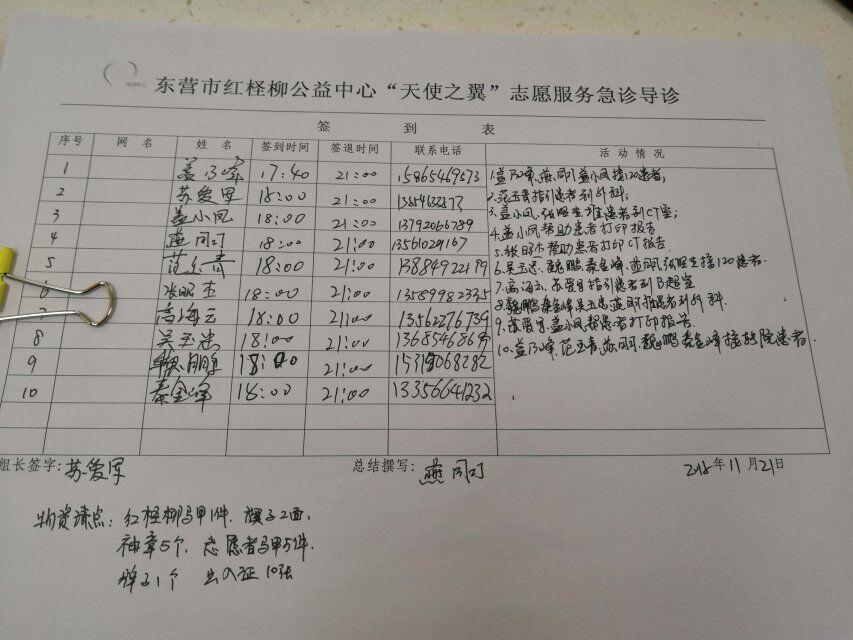 东营市红柽柳公益中心“天使之翼”志愿服务急诊导诊
签 到 表
序号 网 名 姓 名 签到时间 签退时间 联系电话 活动情况
1 盖乃峰 17:40 21:00 15865469573
2 苏爱军 18:00 21:00
3 盖小凤 18:00 21:00 13792066789
4 燕同订 18:00 21:00 13561029167
5 范玉青 18:00 21:00 13884922199
6 张照杰 18:00 21:00 13589982335
7 高海云 18:00 21:00 13562276739
8 吴玉忠 18:00 21:00
9 魏鹏 18:00 21:00
10 秦金峰 18:00 21:00 13356641232
1.盖乃峰、燕同订、盖小凤接120患者;
2.范玉青指引患者到外科;
3.盖小凤、张照杰推患者到CT室;
4.盖小凤帮助患者打印报告
5.张照杰帮助患者打印CT报告.
6.吴玉忠、魏鹏、秦金峰、燕同订、张照杰接120患者.
7.高海云、苏爱军指引患者到B超室
8.魏鹏秦金峰吴玉忠燕同订推患者到外科.
9.苏爱军、盖小凤帮患者打印报告.
10.盖乃峰、范玉青、燕同订、魏鹏秦金峰接转院患者.
组长签字: 苏爱军 总结撰写: 燕同订 2018年11月21日
物资清点: 红柽柳马甲1件. 旗子2面,
袖章5个. 志愿者马甲5件.
牌子1个 出入证10张